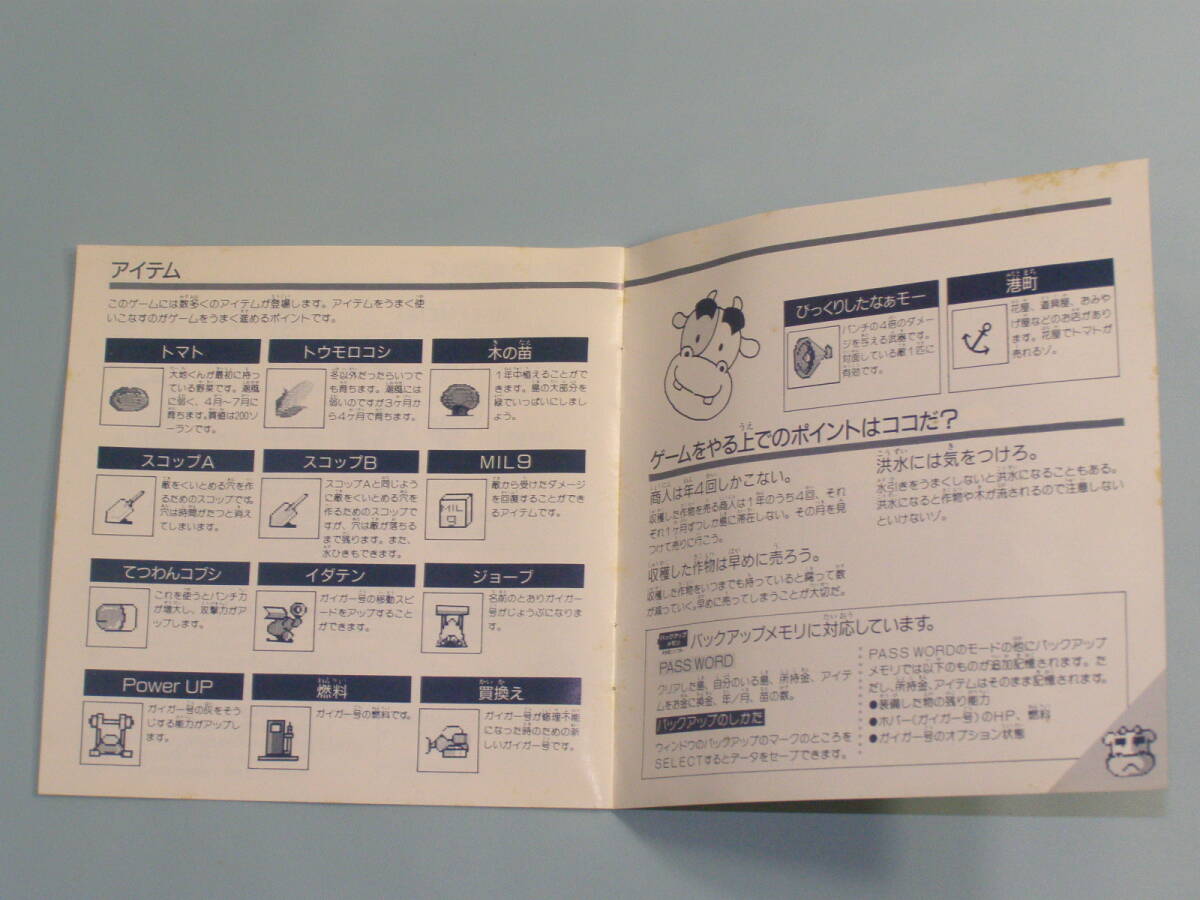 アイテム
このゲームには数多くのアイテムが登場します。アイテムをうまく使
いこなすのがゲームをうまく進めるポイントです。
トマト
大地くんが最初に持っ
ている野菜です。潮風
に弱く、4月〜7月に
育ちます。買値は200ソ
ーランです。
トウモロコシ
冬以外だったらいつで
も育ちます。潮風には
弱いのですが3ヶ月か
ら4ヶ月で育ちます。
木の苗
1年中植えることがで
きます。島の大部分を
緑でいっぱいにしまし
ょう。
スコップA
敵をくいとめる穴を作
るためのスコップです。
穴は時間がたつと消え
てしまいます。
スコップB
スコップAと同じよう
に敵をくいとめる穴を
作るためのスコップで
すが、穴は敵が落ちる
まで残ります。また、
水ひきもできます。
MIL9
敵から受けたダメージ
を回復することができ
るアイテムです。
MIL
9
てつわんコブシ
これを使うとパンチ力
が増大し、攻撃力がア
ップします。
イダテン
ガイガー号の移動スピ
ードをアップすること
ができます。
ジョーブ
名前のとおりガイガー
号がじょうぶになりま
す。
Power UP
ガイガー号の灰をそう
じする能力がアップし
ます。
燃料
ガイガー号の燃料です。
買換え
ガイガー号が修理不能
になった時のための新
しいガイガー号です。
びっくりしたなぁモー
パンチの4倍のダメー
ジを与える武器です。
対面している敵1匹に
有効です。
港町
花屋、道具屋、おみや
げ屋などのお店があり
ます。花屋でトマトが
売れるゾ。
ゲームをやる上でのポイントはココだ?
商人は年4回しかこない。
収穫した作物を売る商人は1年のうち4回、それ
ぞれ1ヶ月ずつしか島に滞在しない。その月を見
つけて売りに行こう。
収穫した作物は早めに売ろう。
収穫した作物をいつまでも持っていると腐って数
が減っていく。早めに売ってしまうことが大切だ。
洪水には気をつけろ。
水引きをうまくしないと洪水になることもある。
洪水になると作物や木が流されるので注意しない
といけないゾ。
バックアップメモリに対応しています。
PASS WORD
クリアした島、自分のいる島、所持金、アイテ
ムをお金に換金、年/月、苗の数。
バックアップのしかた
ウィンドウのバックアップのマークのところを
SELECTするとデータをセーブできます。
PASS WORDのモードの他にバックアップ
メモリでは以下のものが追加記憶されます。た
だし、所持金、アイテムはそのまま記憶されます。
●装備した物の残り能力
●ホバー(ガイガー号)のHP、燃料
●ガイガー号のオプション状態